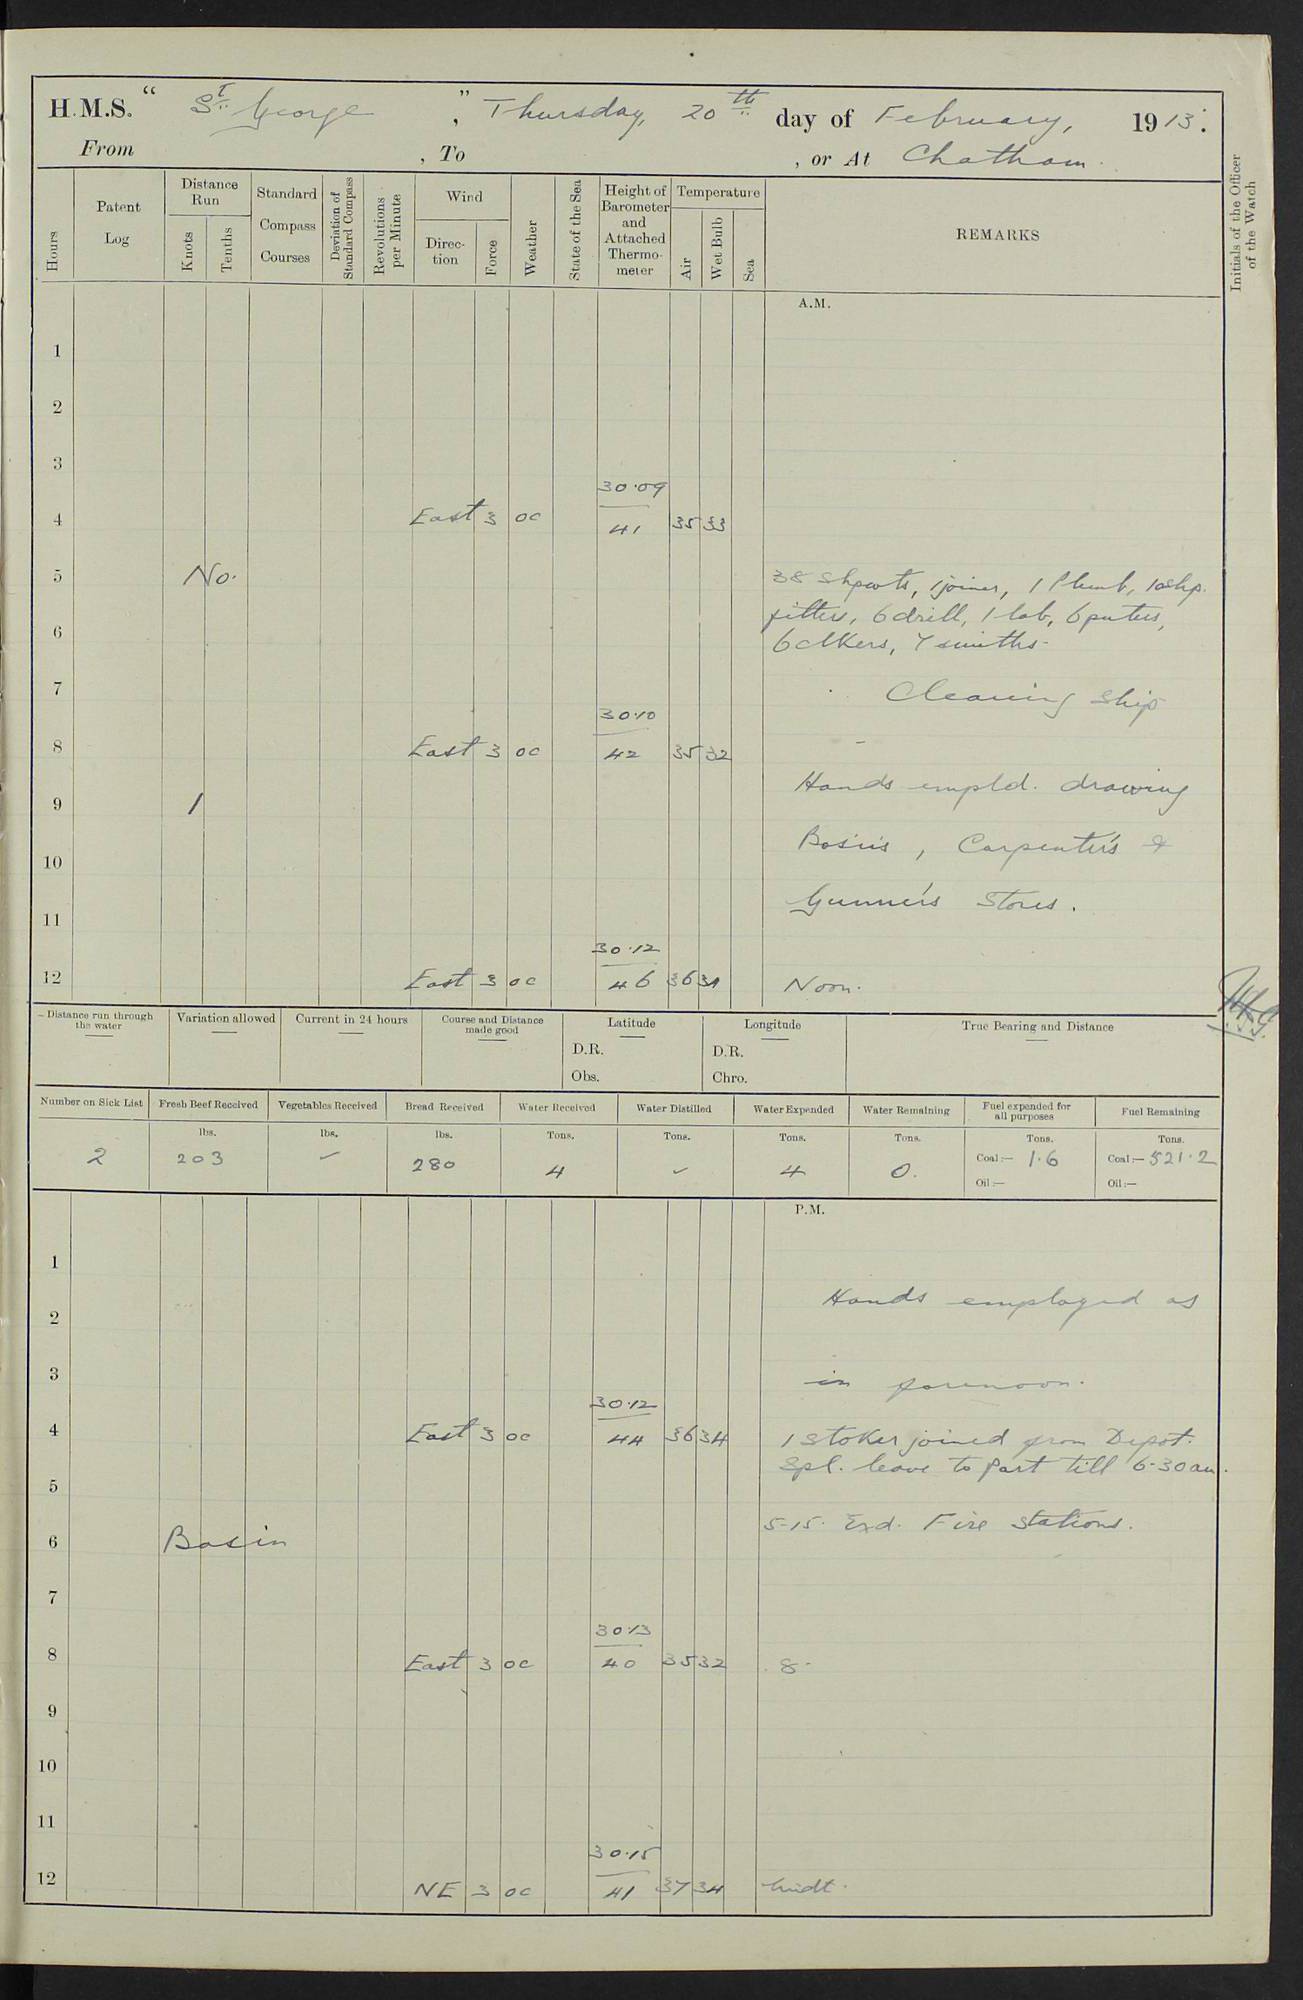 H.M.S. “ St. George ”, Thursday, 20th day of February, 1913.
From , To , or At Chatham.
Hours
Patent Log
Distance Run
Knots
Tenths
Standard Compass Courses
Deviation of Standard Compass
Revolutions per Minute
Wind
Direction
Force
Weather
State of the Sea
Height of Barometer and Attached Thermometer
Temperature
Air
Wet Bulb
Sea
REMARKS
Initials of the Officer of the Watch
A.M.
1
2
3
30.09
4 East 3 oc 41 35 33
5 No. 38 Shpwts, 1 joiner, 1 Plumb,
fitters, 6 drill, 1 lab, 6 pnters,
6
6 clkers, 7 smiths.
7 Cleaning Ship
30.10
8 East 3 oc 42 35 32
Hands empld. drawing
9 1
Bosun's, Carpenter's &
10
Gunner's Stores.
11
30.12
12 East 3 oc 46 36 34 Noon.
Distance run through the water
Variation allowed
Current in 24 hours
Course and Distance made good
Latitude
D.R.
Obs.
Longitude
D.R.
Chro.
True Bearing and Distance
Number on Sick List
Fresh Beef Received
Vegetables Received
Bread Received
Water Received
Water Distilled
Water Expended
Water Remaining
Fuel expended for all purposes
Fuel Remaining
lbs. lbs. lbs. Tons. Tons. Tons. Tons. Tons. Tons.
2 203 ✓ 280 4 ✓ 4 0. Coal:— 1.6 Coal:— 521.2
Oil:— Oil:—
P.M.
1
Hands employed as
2
3 in forenoon.
30.12
4 East 3 oc 44 36 34 1 Stoker joined from Depot.
Spl. leave to Part till 6.30 am.
5
5-15. Exd. Fire Stations.
6 Basin
7
30.13
8 East 3 oc 40 35 32 8.
9
10
11
30.15
12 NE 3 oc 41 37 34 Midt.